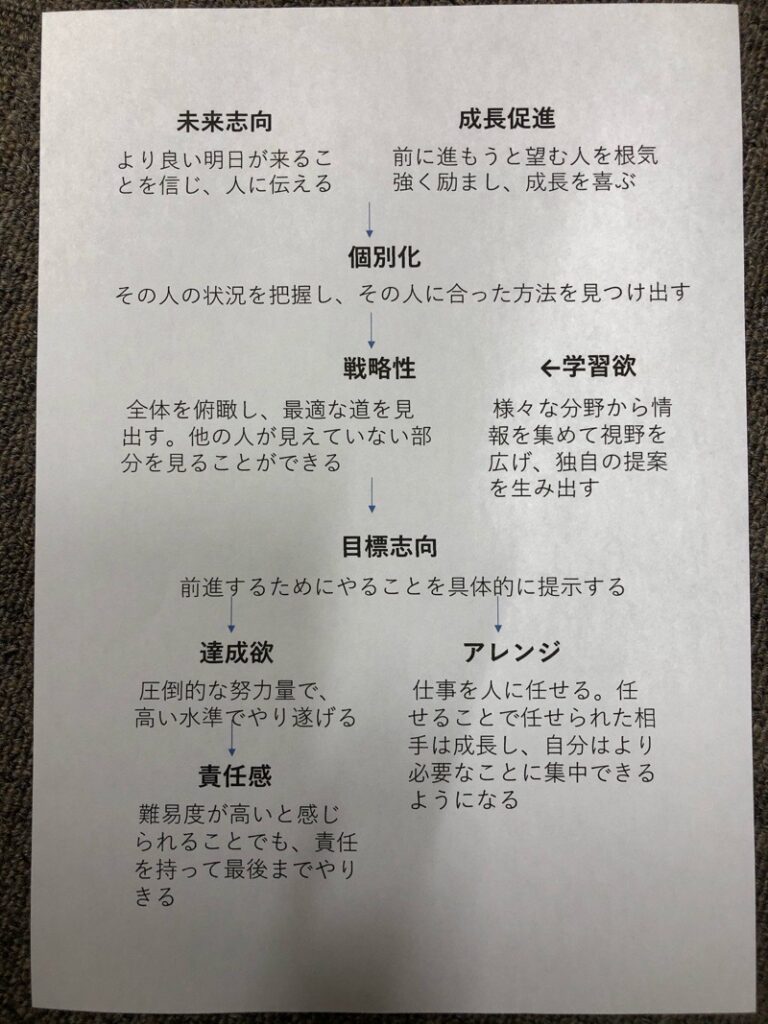 未来志向
より良い明日が来るこ
とを信じ、人に伝える
成長促進
前に進もうと望む人を根気
強く励まし、成長を喜ぶ
個別化
その人の状況を把握し、その人に合った方法を見つけ出す
戦略性
全体を俯瞰し、最適な道を見
出す。他の人が見えていない部
分を見ることができる
←学習欲
様々な分野から情
報を集めて視野を
広げ、独自の提案
を生み出す
目標志向
前進するためにやることを具体的に提示する
達成欲
圧倒的な努力量で、
高い水準でやり遂げる
責任感
難易度が高いと感じ
られることでも、責任
を持って最後までやり
きる
アレンジ
仕事を人に任せる。任
せることで任せられた相
手は成長し、自分はより
必要なことに集中できる
ようになる